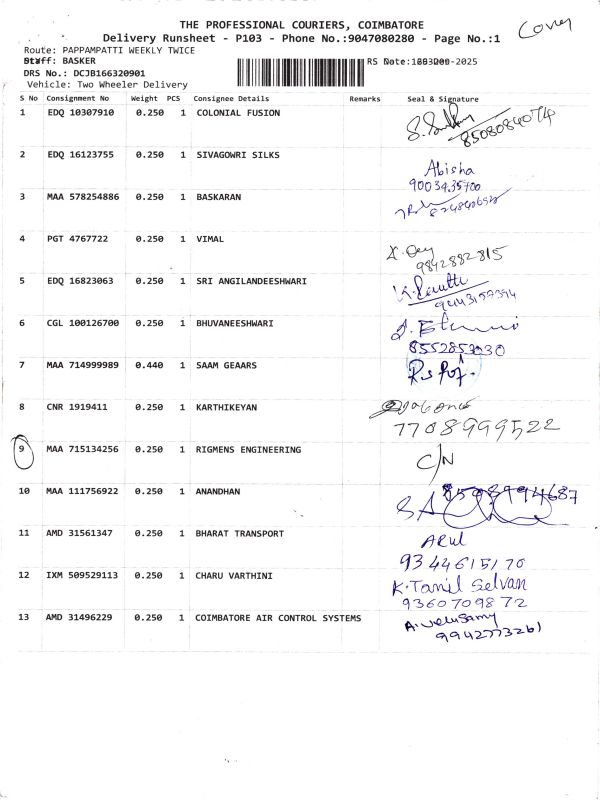 THE PROFESSIONAL COURIERS, COIMBATORE
Cover
Delivery Runsheet - P103 - Phone No.:9047080280 - Page No.:1
Route: PAPPAMPATTI WEEKLY TWICE
Staff: BASKER
DRS No.: DCJB166320901
Vehicle: Two Wheeler Delivery
S No Consignment No Weight PCS Consignee Details Remarks Seal & Signature
1 EDQ 10307910 0.250 1 COLONIAL FUSION 8508084074
2 EDQ 16123755 0.250 1 SIVAGOWRI SILKS Abisha
9003435700
3 MAA 578254886 0.250 1 BASKARAN
4 PGT 4767722 0.250 1 VIMAL
9842882815
5 EDQ 16823063 0.250 1 SRI ANGILANDEESHWARI
9443157394
6 CGL 100126700 0.250 1 BHUVANEESHWARI
8552853030
7 MAA 714999989 0.440 1 SAAM GEAARS
8 CNR 1919411 0.250 1 KARTHIKEYAN
7708999522
9 MAA 715134256 0.250 1 RIGMENS ENGINEERING C/N
10 MAA 111756922 0.250 1 ANANDHAN 8508994687
11 AMD 31561347 0.250 1 BHARAT TRANSPORT ARUL
9344615170
12 IXM 509529113 0.250 1 CHARU VARTHINI K.Tamil Selvan
9360709872
13 AMD 31496229 0.250 1 COIMBATORE AIR CONTROL SYSTEMS A.velusamy
9942773261